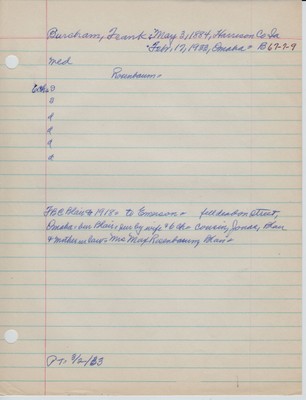 Burcham, Frank, May 3, 1884, Harrison Co Ia
Febr. 17, 1933, Omaha - B 67-7-9
wed
Rosenbaum -
6 chs
TBC Blair 1918 - to Emerson - fell dead on street,
Omaha - bur Blair - sur by wife & 6 ch - Cousin, Blair
& Mother in law - Mrs Max Rosenbaum, Blair -
PT - 3/2/33